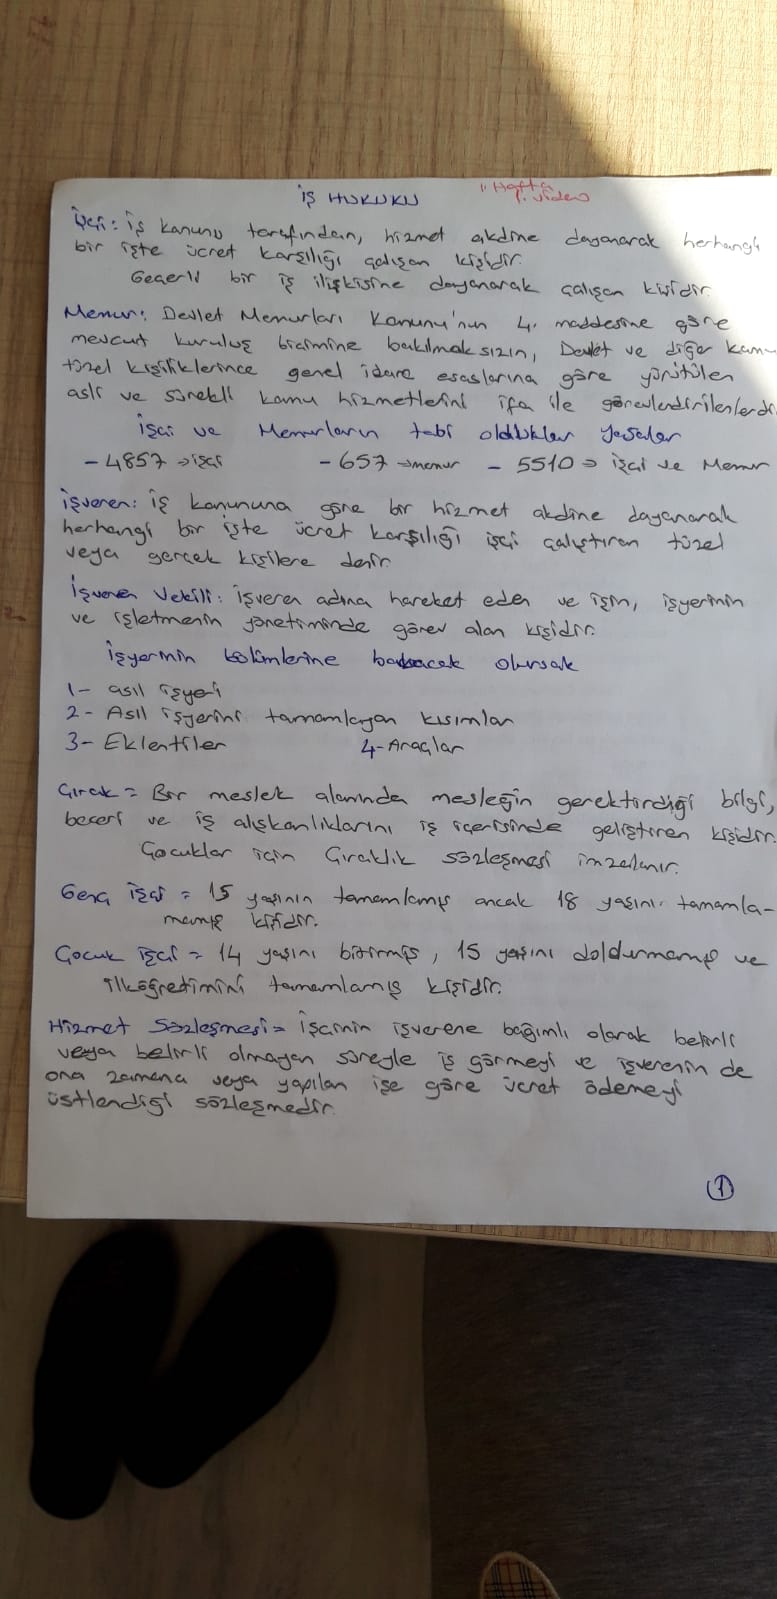 İŞ HUKUKU
1. Hafta
1. video
İşçi: İş kanunu tarafından, hizmet akdine dayanarak herhangi
bir işte ücret karşılığı çalışan kişidir.
Geçerli bir iş ilişkisine dayanarak çalışan kişidir.
Memur: Devlet Memurları Kanunu'nun 4. maddesine göre
mevcut kuruluş biçimine bakılmaksızın, Devlet ve diğer kamu
tüzel kişiliklerince genel idare esaslarına göre yürütülen
asli ve sürekli kamu hizmetlerini ifa ile görevlendirilenlerdir.
İşçi ve Memurların tabi oldukları yasalar
- 4857 → işçi - 657 → memur - 5510 → işçi ve Memur
İşveren: İş kanununa göre bir hizmet akdine dayanarak
herhangi bir işte ücret karşılığı işçi çalıştıran tüzel
veya gerçek kişilere denir.
İşveren Vekili: İşveren adına hareket eden ve işin, işyerinin
ve işletmenin yönetiminde görev alan kişidir.
İşyerinin bölümlerine bakacak olursak
1- asıl işyeri
2- Asıl işyerini tamamlayan kısımlar
3- Eklentiler 4- Araçlar
Çırak = Bir meslek alanında mesleğin gerektirdiği bilgi,
beceri ve iş alışkanlıklarını iş içerisinde geliştiren kişidir.
Çocuklar için Çıraklık sözleşmesi imzalanır.
Genç işçi = 15 yaşının tamamlamış ancak 18 yaşını tamamla-
mamış kişidir.
Çocuk işçi = 14 yaşını bitirmiş, 15 yaşını doldurmamış ve
ilköğretimini tamamlamış kişidir.
Hizmet Sözleşmesi = İşçinin işverene bağımlı olarak belirli
veya belirli olmayan süreyle iş görmeyi ve işverenin de
ona zamana veya yapılan işe göre ücret ödemeyi
üstlendiği sözleşmedir.
1